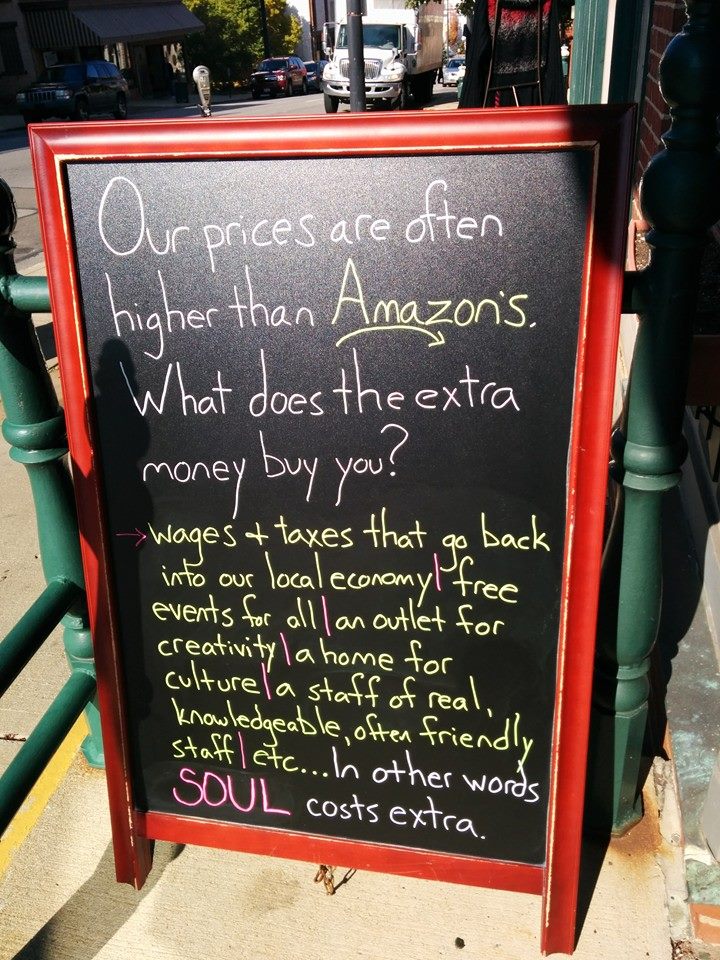 Our prices are often
higher than Amazon's.
What does the extra
money buy you?
→wages + taxes that go back
into our local economy | free
events for all | an outlet for
creativity | a home for
culture | a staff of real,
knowledgeable, often friendly
staff | etc... In other words
SOUL costs extra.